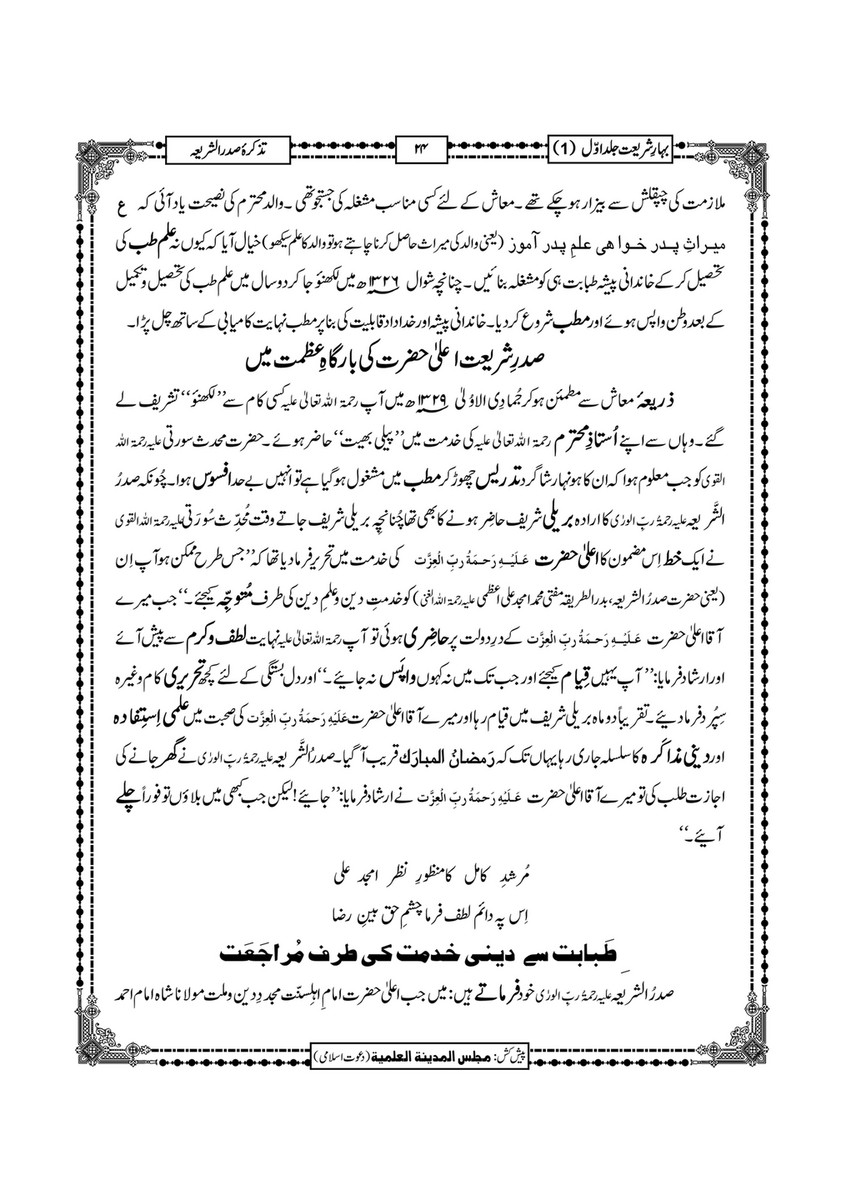 بہارِشریعت جلد اوّل (1)
۲۴
تذکرۂ صدرالشریعہ
ملازمت کی چپقلش سے بیزار ہوچکے تھے۔ معاش کے لئے کسی مناسب مشغلہ کی جستجو تھی۔ والد محترم کی نصیحت یاد آئی کہ ع
میراثِ پدر خواهی علمِ پدر آموز (یعنی والد کی میراث حاصل کرنا چاہتے ہو تو والد کا علم سیکھو) خیال آیا کہ کیوں نہ علم طب کی
تحصیل کرکے خاندانی پیشہ طبابت ہی کو مشغلہ بنائیں۔ چنانچہ شوال ۱۳۲۶ھ میں لکھنؤ جا کر دو سال میں علم طب کی تحصیل و تکمیل
کے بعد وطن واپس ہوئے اور مطب شروع کردیا۔ خاندانی پیشہ اور خداداد قابلیت کی بنا پر مطب نہایت کامیابی کے ساتھ چل پڑا۔
صدرِشریعت اعلیٰ حضرت کی بارگاہِ عظمت میں
ذریعۂ معاش سے مطمئن ہوکر جُمادِی الاوُلیٰ ۱۳۲۹ھ میں آپ رحمۃ اللہ تعالیٰ علیہ کسی کام سے ’’لکھنؤ‘‘ تشریف لے
گئے۔ وہاں سے اپنے اُستاذِ محترم رحمۃ اللہ تعالیٰ علیہ کی خدمت میں ’’پیلی بھیت‘‘ حاضر ہوئے۔ حضرت محدث سورتی علیہ رحمۃ اللہ
القوی کو جب معلوم ہوا کہ ان کا ہونہار شاگرد تدریس چھوڑ کر مطب میں مشغول ہوگیا ہے تو انہیں بے حد افسوس ہوا۔ چُونکہ صدرُ
الشَّریعہ علیہ رحمۃُ ربِّ الورٰی کا ارادہ بریلی شریف حاضِر ہونے کا بھی تھا چُنانچِہ بریلی شریف جاتے وقت مُحدِّث سُورَتی علیہ رحمۃ اللہ القوی
نے ایک خط اِس مضمون کا اعلیٰ حضرت عَلَیْہِ رَحمَۃُ ربِّ الْعِزَّت کی خدمت میں تحریر فرمادیا تھا کہ ’’جس طرح ممکن ہو آپ اِن
(یعنی حضرت صدرُ الشریعہ، بدرالطریقہ مفتی محمد امجد علی اعظمی علیہ رحمۃ اللہ الغنی) کو خدمتِ دین و علمِ دین کی طرف مُتَوجِّہ کیجئے۔‘‘ جب میرے
آقا اعلیٰ حضرت عَلَیْہِ رَحمَۃُ ربِّ الْعِزَّت کے درِ دولت پر حاضِری ہوئی تو آپ رحمۃ اللہ تعالیٰ علیہ نہایت لطف و کرم سے پیش آئے
اور ارشاد فرمایا: ’’آپ یہیں قِیام کیجئے اور جب تک میں نہ کہوں واپَس نہ جایئے۔‘‘ اور دل بستگی کے لئے کچھ تحریری کام وغیرہ
سِپُرد فرما دیئے۔ تقریباً دو ماہ بریلی شریف میں قیام رہا اور میرے آقا اعلیٰ حضرت عَلَیْہِ رَحمَۃُ ربِّ الْعِزَّت کی صحبت میں علمی اِستِفادہ
اور دینی مذاکَرہ کا سلسلہ جاری رہا یہاں تک کہ رَمضانُ المبارَک قریب آگیا۔ صدرُالشَّریعہ علیہ رحمۃُ ربِّ الورٰی نے گھر جانے کی
اجازت طلب کی تو میرے آقا اعلیٰ حضرت عَلَیْہِ رَحمَۃُ ربِّ الْعِزَّت نے ارشاد فرمایا: ’’جایئے! لیکن جب کبھی میں بلاؤں تو فوراً چلے
آیئے۔‘‘
مُرشدِ کامل کا منظورِ نظر امجد علی
اِس پہ دائم لطف فرما چشمِ حق بینِ رضا
طَبابت سے دینی خدمت کی طرف مُراجَعَت
صدرُ الشریعہ علیہ رحمۃُ ربِّ الورٰی خود فرماتے ہیں: میں جب اعلیٰ حضرت امامِ اہلِسنّت مجددِ دین و ملت مولانا شاہ امام احمد
پیش کش: مجلس المدینۃ العلمیۃ (دعوت اسلامی)